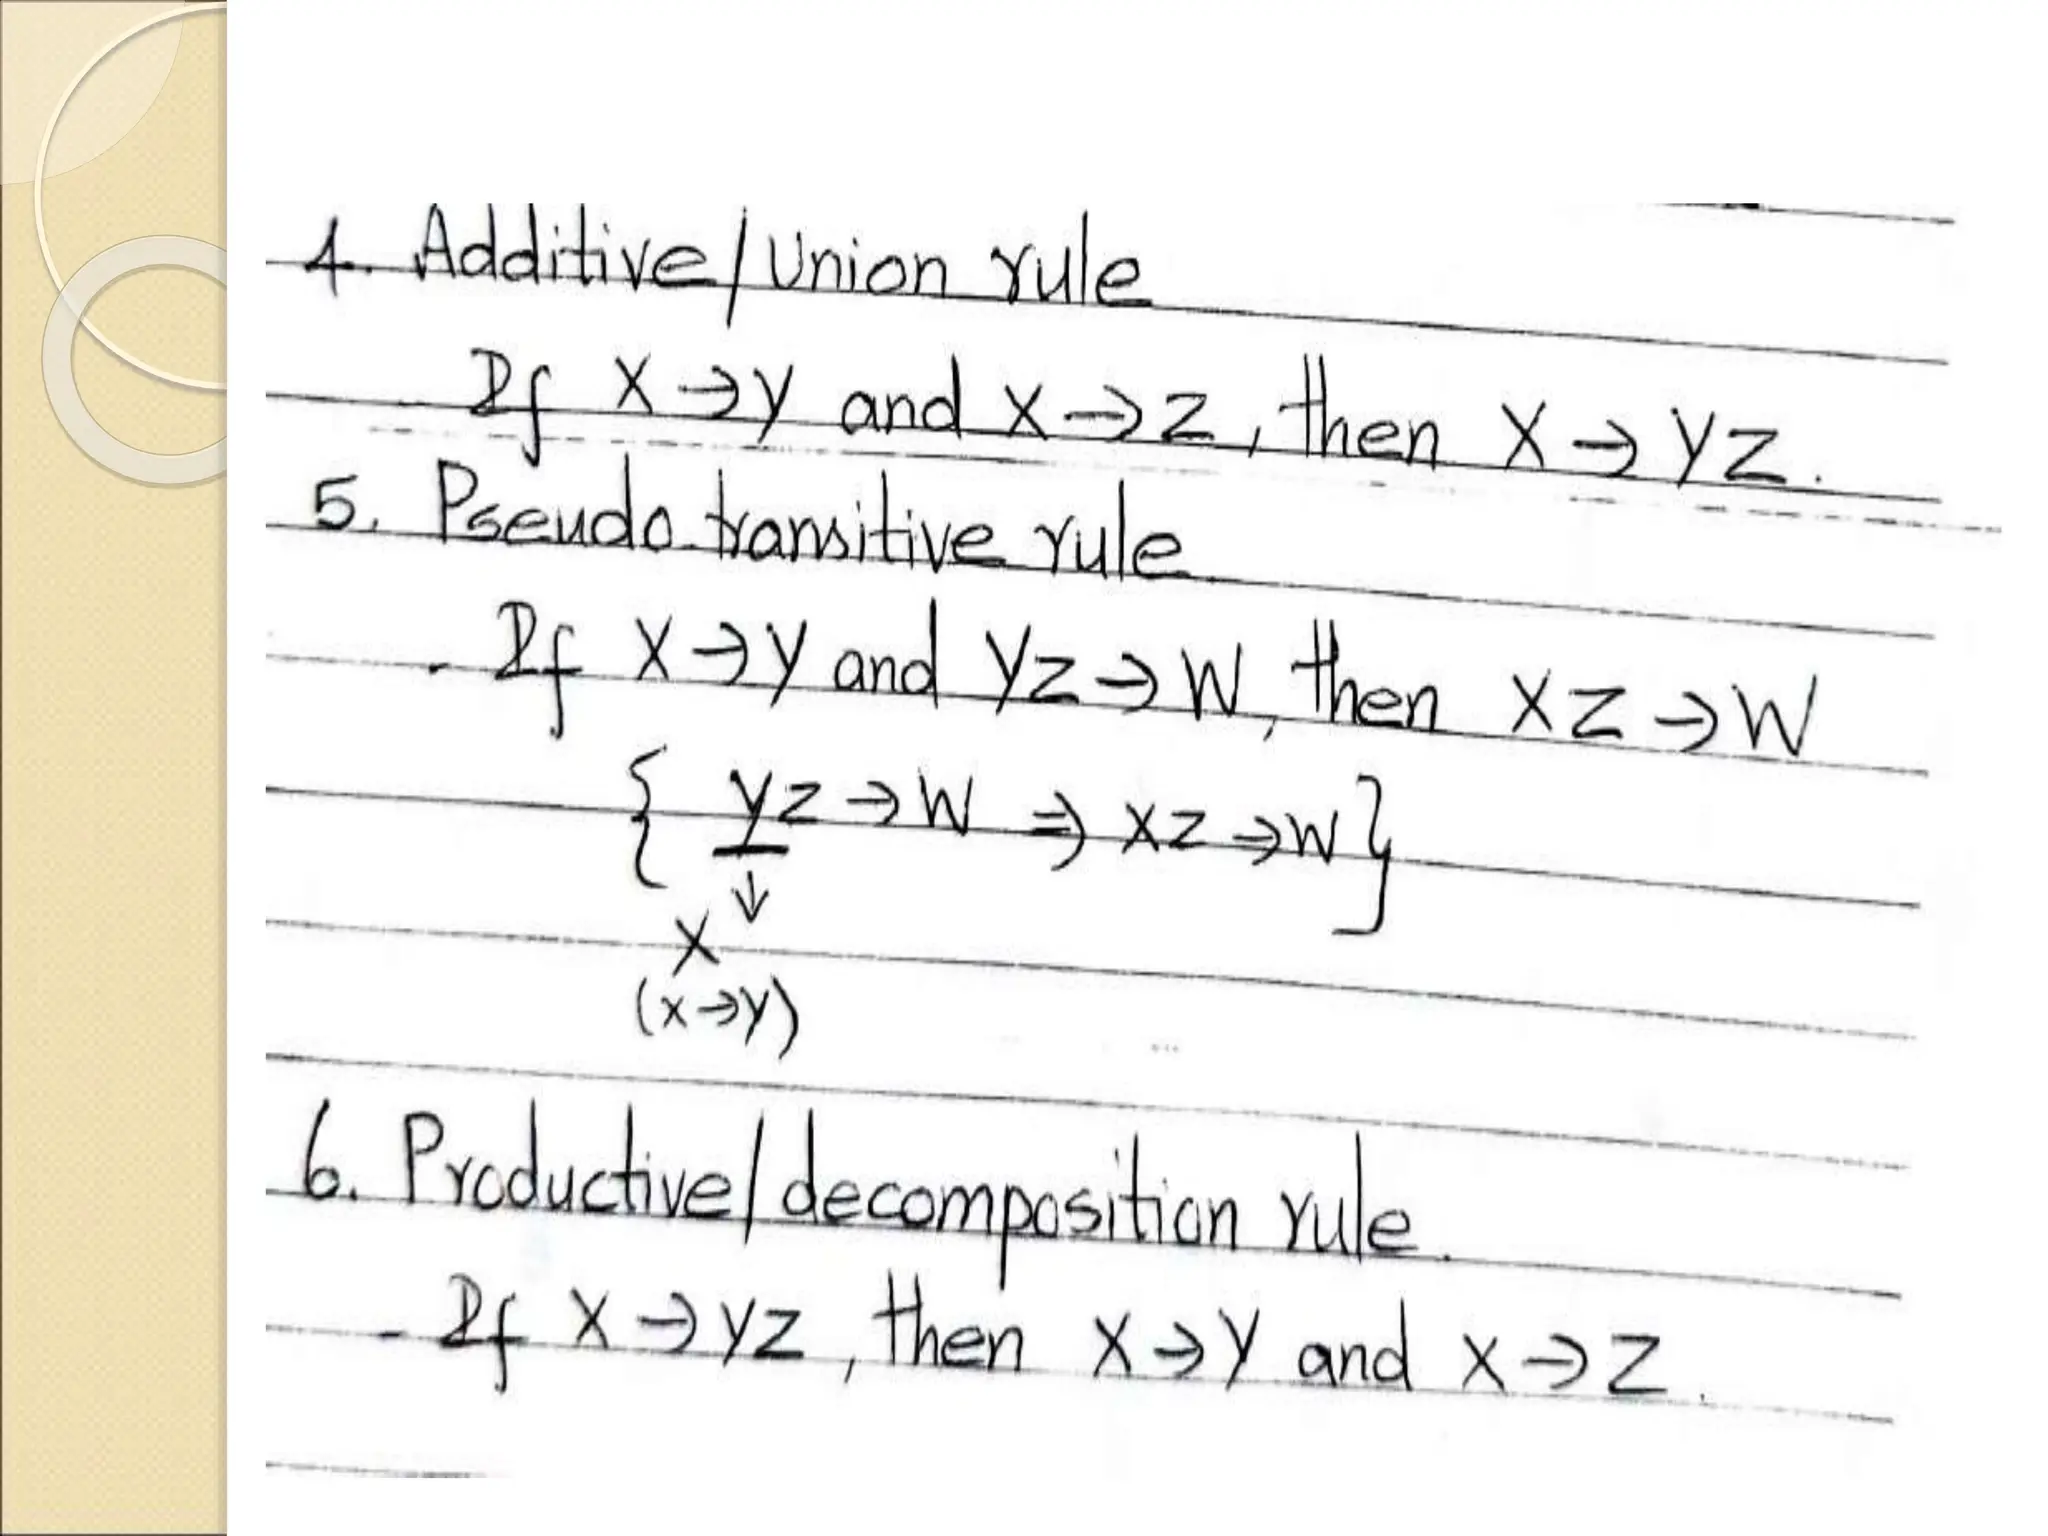 4. Additive/Union rule
If X→Y and X→Z, then X→YZ.
5. Pseudo transitive rule
- If X→Y and YZ→W, then XZ→W
{ YZ→W ⇒ XZ→W}
↓
X
(X→Y)
6. Productive/decomposition rule.
- If X→YZ, then X→Y and X→Z.